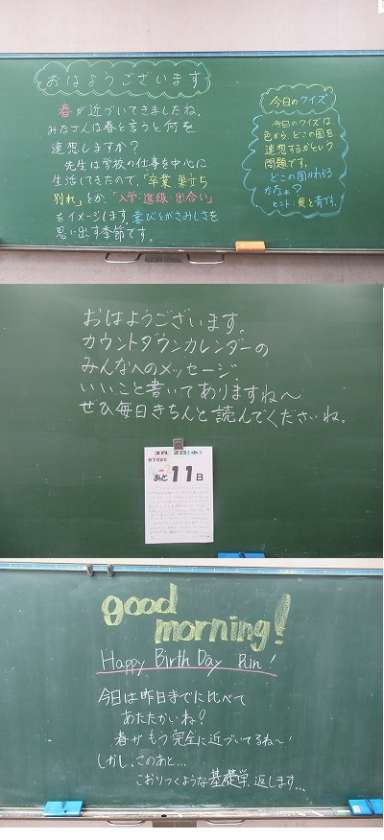 おはようございます
春が近づいてきましたね。
みなさんは春と言うと何を
連想しますか?
先生は学校の仕事を中心に
生活してきたので、「卒業 巣立ち
別れ」とか、「入学・進級・出会い」
をイメージします。喜びとかさみしさを
思い出す季節です。
今日のクイズ
今日のクイズは
色から、どこの国を
連想するかという
問題です。
どこの国かわかる
かなぁ?
ヒント:黄と青です。
おはようございます。
カウントダウンカレンダーの
みんなへのメッセージ
いいこと書いてありますね〜
ぜひ毎日きちんと読んでくださいね。
あと11日
good
morning!
Happy Birth Day Rin!
今日は昨日までに比べて
あたたかいね?
春がもう完全に近づいてるね〜!
しかし、このあと…
こおりつくような基礎学、返します…